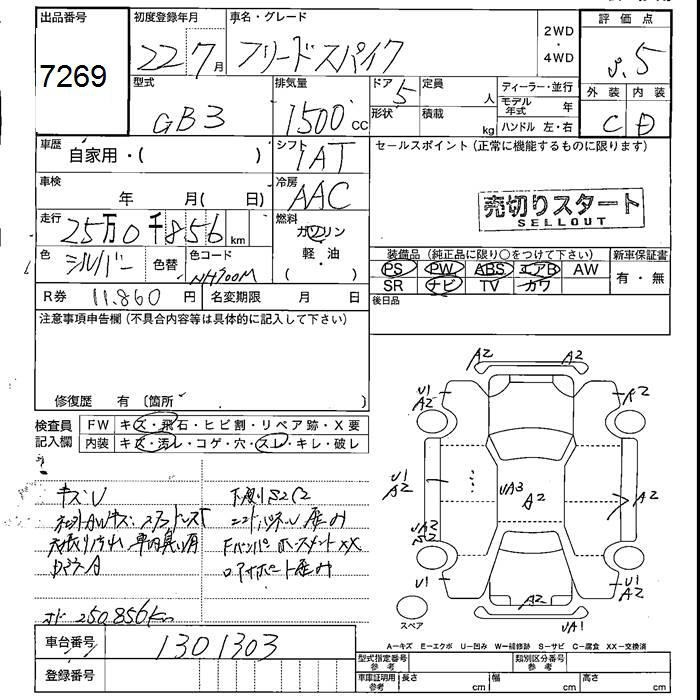 出品番号
7269
初度登録年月
22 7月
車名・グレード
フリードスパイク
2WD
・
4WD
評価点
3.5
外装 内装
C D
型式
GB3
排気量
1500cc
ドア 5
形状
定員 人
積載 kg
ディーラー・並行
モデル年式 年
ハンドル 左・右
車歴
自家用・( )
シフト
IAT
セールスポイント(正常に機能するものに限ります)
売切りスタート
SELLOUT
車検
年 月( 日)
冷房
AAC
走行
25万0千856km
燃料
ガソリン
軽・油
( )
色
シルバー
色替
色コード
NH700M
装備品(純正品に限り○をつけて下さい)
PS PW ABS エアB AW
SR ナビ TV カワ
新車保証書
有・無
後日品
R券 11.860円
名変期限 月 日
注意事項申告欄(不具合内容等は具体的に記入して下さい)
修復歴 有〔箇所 〕
検査員
記入欄
FW キズ・飛石・ヒビ割・リペア跡・X要
内装 キズ・汚レ・コゲ・穴・スレ・キレ・破レ
キズ・U
下廻りS2C2
ルーフA
メーター 250,856km
A2 A2
U1
A2
A2
U1
A2
UA3
A2
A2
UA2
S2
U1
A2
U1
A2
UA1
スペア
A-キズ E-エクボ U-凹み W-補修跡 S-サビ C-腐食 XX-交換済
車台番号
1301303
登録番号
型式指定番号
参考
類別区分番号
参考
車庫証明用
参考
長さ cm
幅 cm
高さ cm